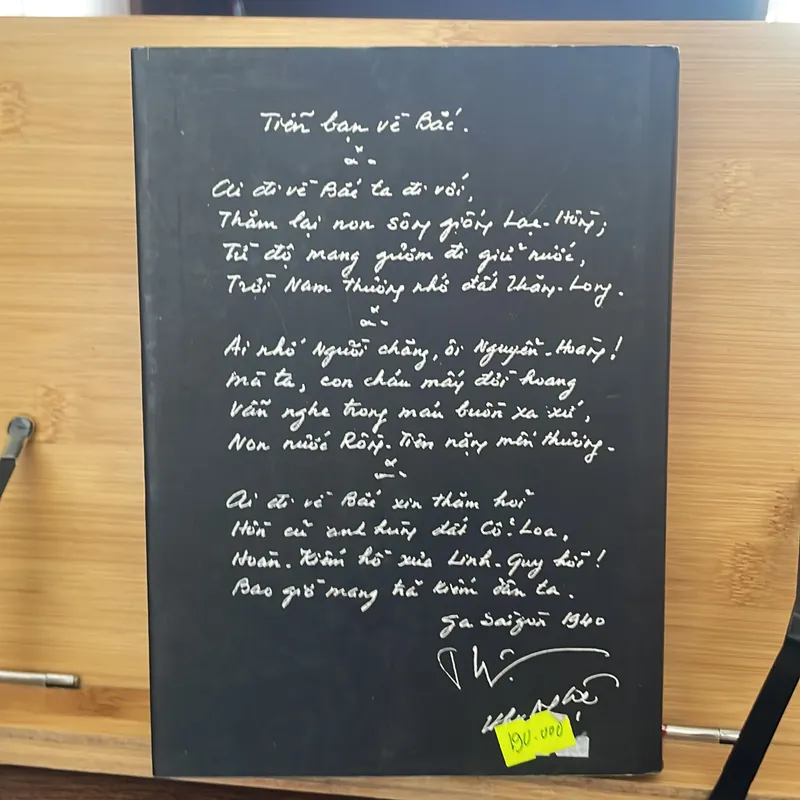 Tiễn bạn về Bắc.
Ai đi về Bắc ta đi với,
Thăm lại non sông giống Lạc-Hồng;
Từ độ mang gươm đi giữ nước,
Trời Nam thương nhớ đất Thăng-Long.
Ai nhớ Người chăng, ôi Nguyễn-Hoàng!
Mà ta, con cháu mấy đời hoang
Vẫn nghe trong máu buồn xa xứ,
Non nước Rồng-Tiên nặng mến thương.
Ai đi về Bắc xin thăm hỏi
Hồn cũ anh hùng đất Cổ-Loa,
Hoàn-Kiếm hồ xưa Linh-Quy hỡi!
Bao giờ mang trả kiếm dân ta.
Ga Saigon 1940
190.000